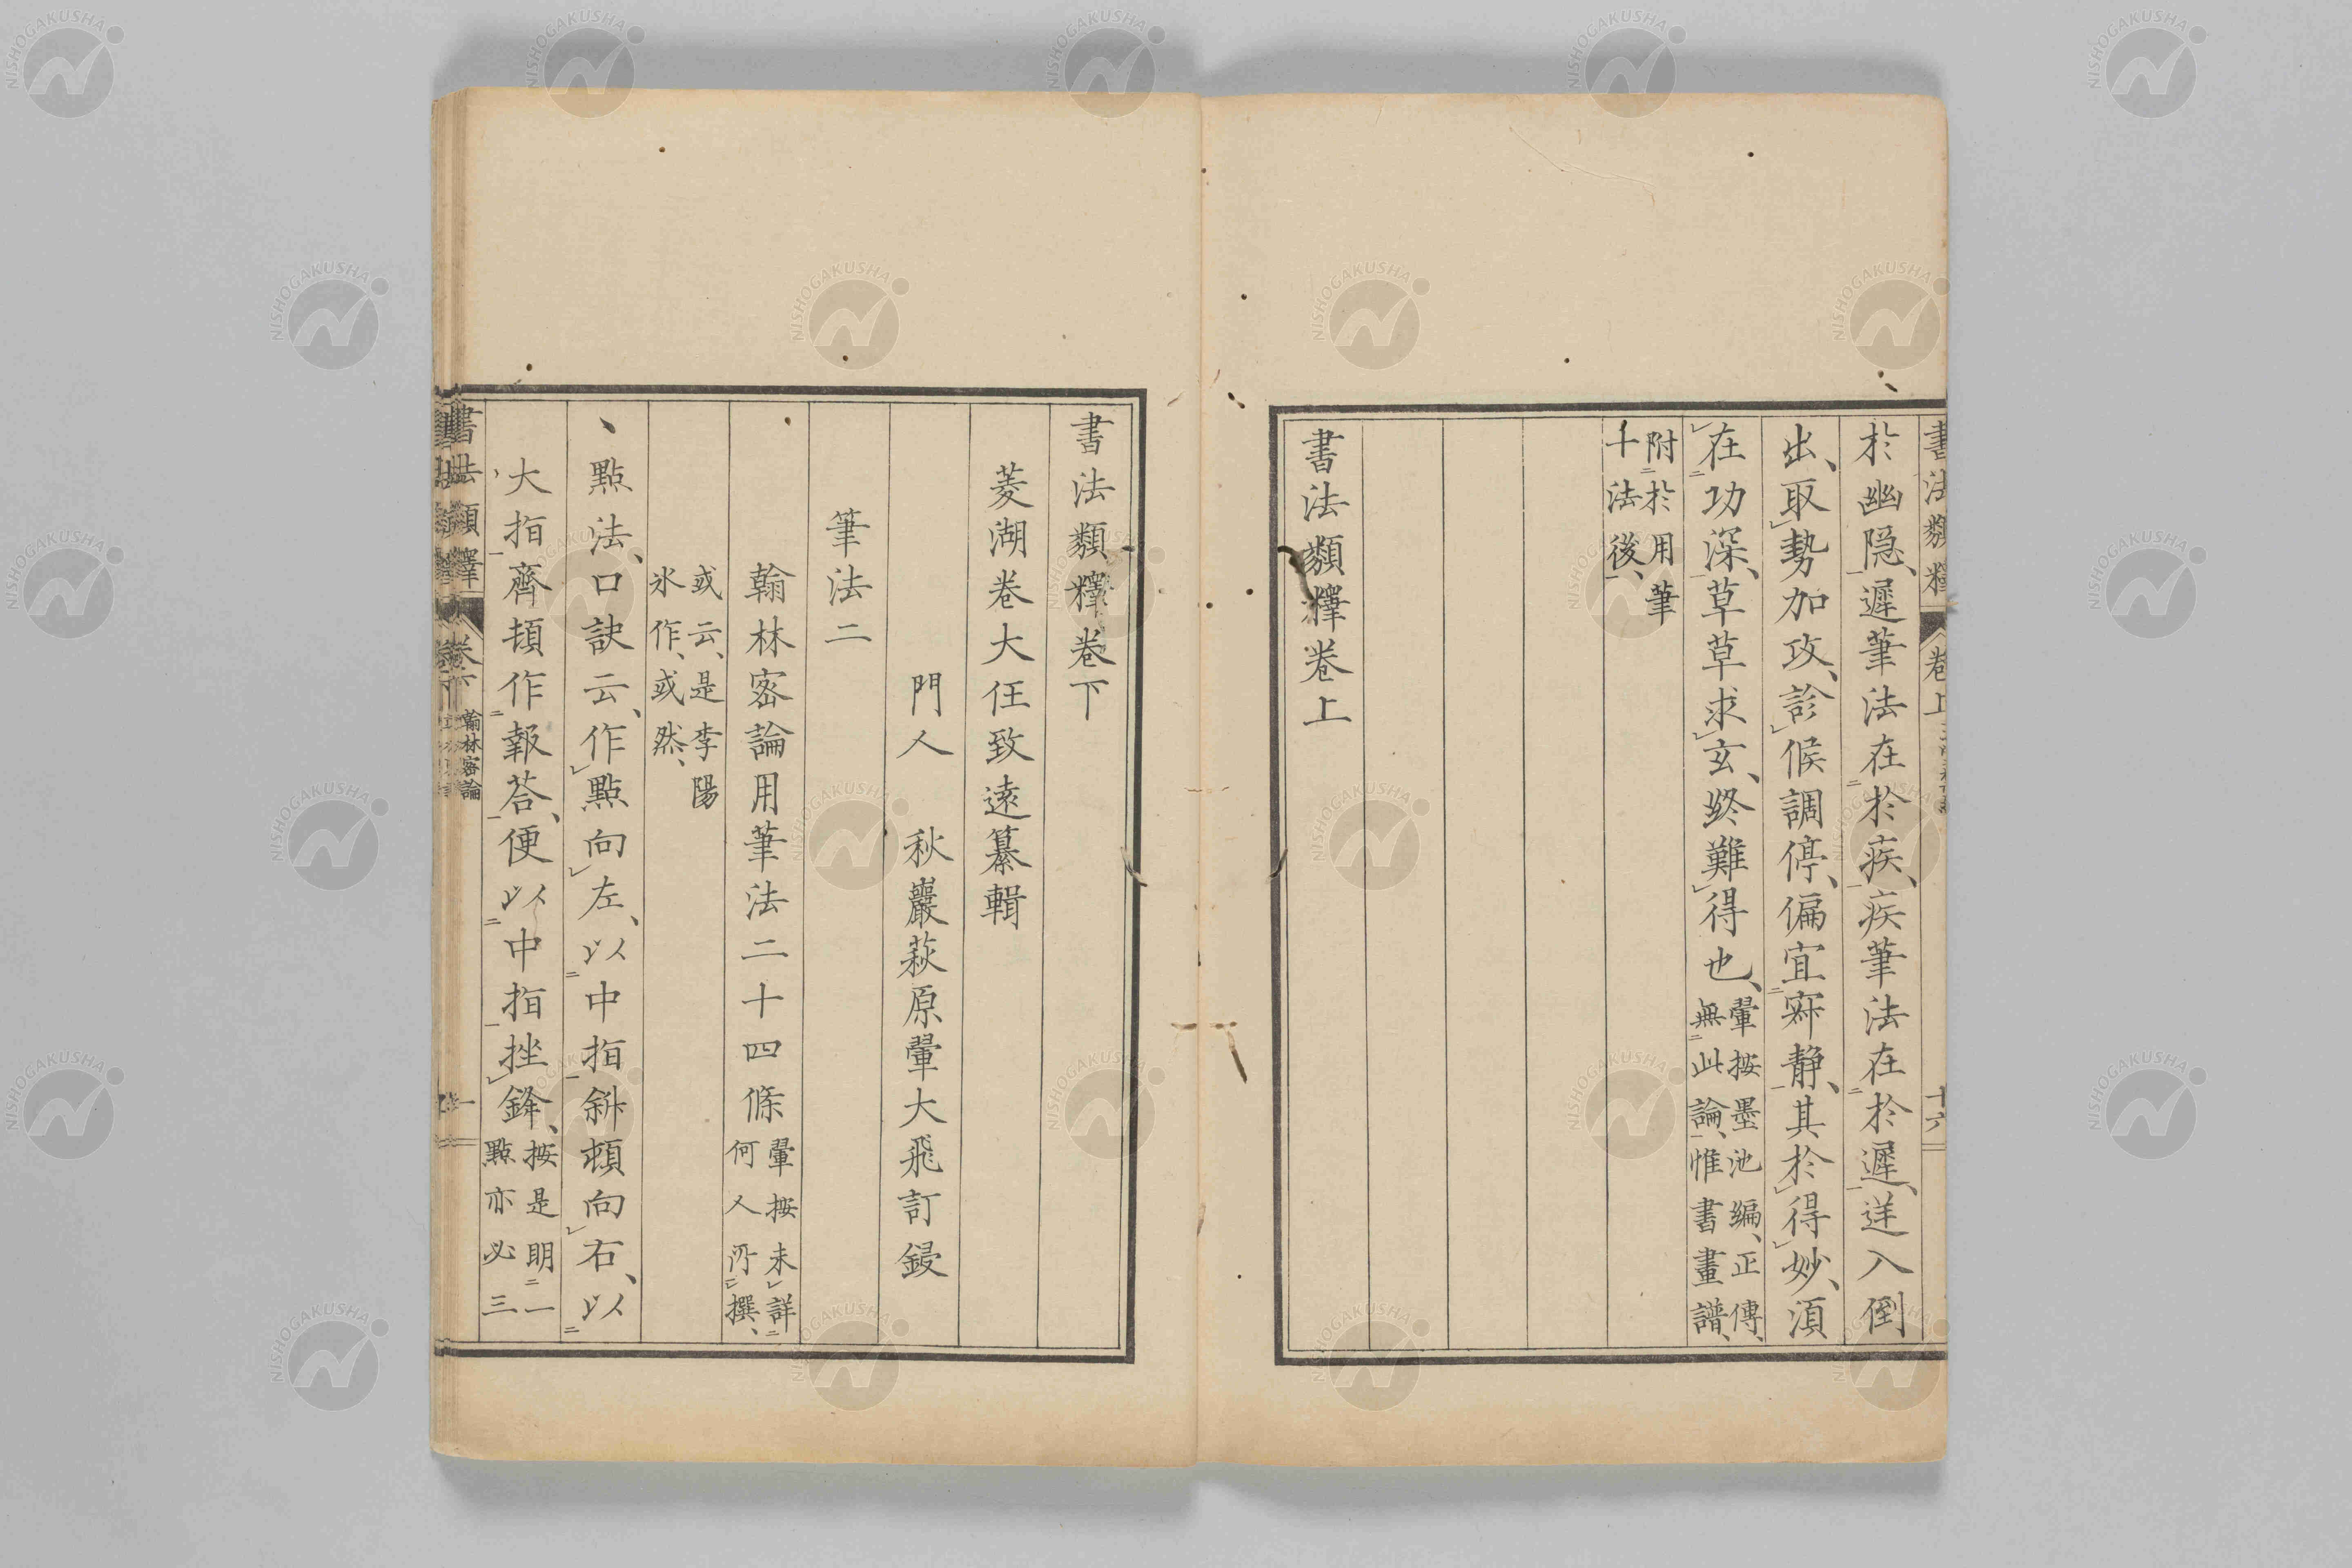 於幽隠、遲筆法在於疾、疾筆法在於遲、逆入倒
出、取勢加攻、診候調停、偏宜寂静、其於得妙、須
在功深、草草求玄、終難得也、翬按墨池編、正傳、
無此論、惟書畫譜、
附於用筆
十法後、
書法類釋卷上
書法類釋卷下
菱湖卷大任致遠纂輯
門人 秋巖萩原翬大飛訂錽
筆法二
翰林密論用筆法二十四條翬按未詳
何人所撰、
或云、是李陽
氷作、或然、
丶點法、口訣云、作點向左、以中指斜頓向右、以
大指齊頓作報荅、便以中指挫鋒、按是明一
點亦必三
書法類釋 卷下 翰林密論 一
書法類釋 卷上 十六
NISHOGAKUSHA